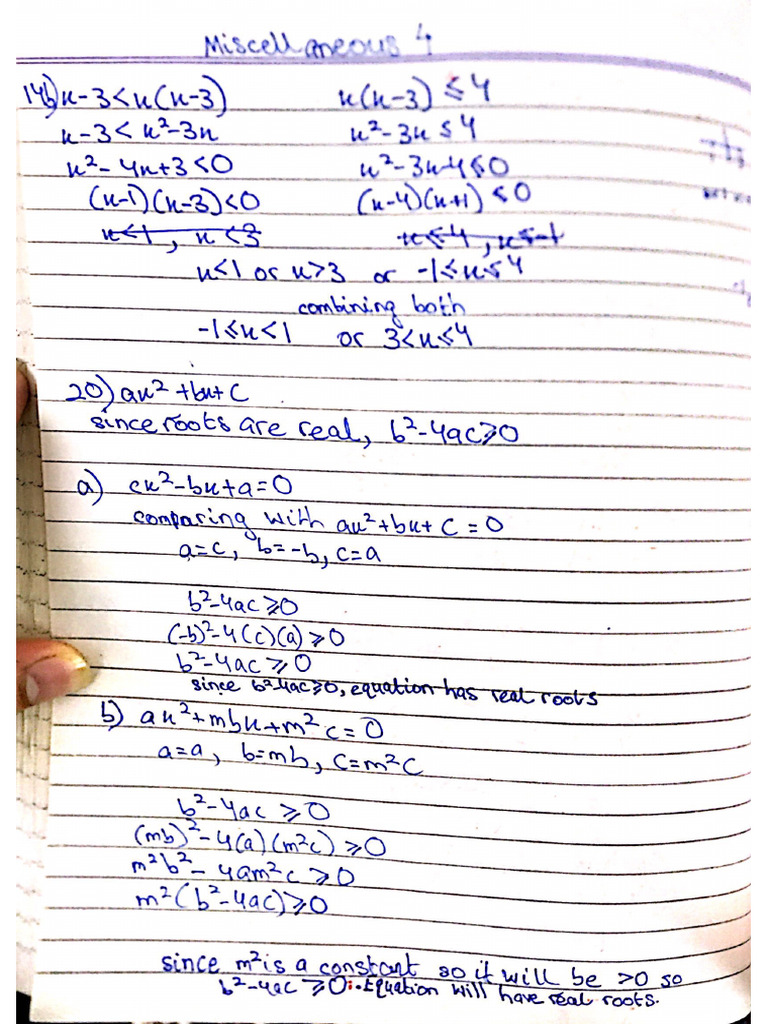 Miscellaneous 4
14b) x-3<x(x-3)    x(x-3) ≤4
x-3< x²-3x    x²-3x ≤4
x²-4x+3<0    x²-3x-4≤0
(x-1)(x-3)<0    (x-4)(x+1) ≤0
x<1, x<3    x≤4, x≤-1
x<1 or x>3 or -1≤x≤4
combining both
-1≤x<1 or 3<x≤4
20) ax²+bx+c
since roots are real, b²-4ac≥0
a) cx²-bx+a=0
comparing with ax²+bx+c=0
a=c, b=-b, c=a
b²-4ac≥0
(-b)²-4(c)(a)≥0
b²-4ac≥0
since b²-4ac≥0, equation has real roots
b) ax²+mbx+m²c=0
a=a, b=mb, c=m²c
b²-4ac≥0
(mb)²-4(a)(m²c)≥0
m²b²-4am²c≥0
m²(b²-4ac)≥0
since m² is a constant so it will be >0 so
b²-4ac≥0. Equation will have real roots.